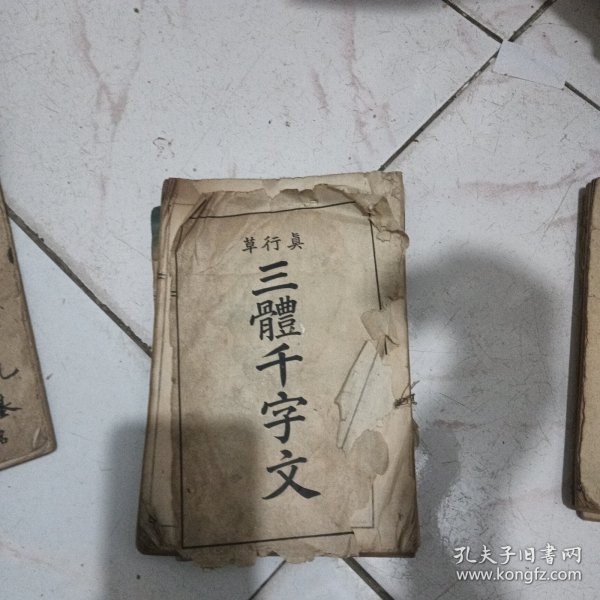 真行草
三體千字文
孔夫子旧書网
www.kongfz.com